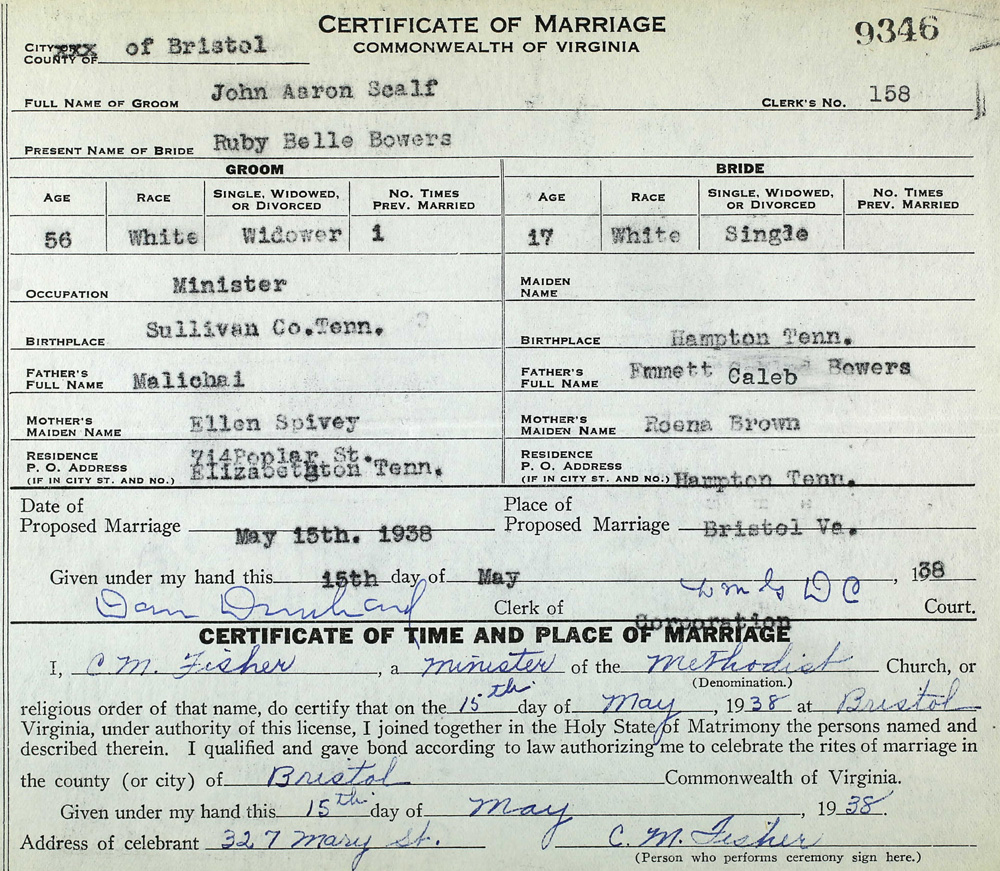 CERTIFICATE OF MARRIAGE
COMMONWEALTH OF VIRGINIA
9346
CITY OR xxx of Bristol
COUNTY OF
FULL NAME OF GROOM John Aaron Scalf CLERK'S NO. 158
PRESENT NAME OF BRIDE Ruby Belle Bowers
GROOM BRIDE
AGE RACE SINGLE, WIDOWED, OR DIVORCED NO. TIMES PREV. MARRIED AGE RACE SINGLE, WIDOWED, OR DIVORCED NO. TIMES PREV. MARRIED
56 White Widower 1 17 White Single
OCCUPATION Minister MAIDEN NAME
BIRTHPLACE Sullivan Co.Tenn. BIRTHPLACE Hampton Tenn.
FATHER'S FULL NAME Malichai FATHER'S FULL NAME Emmett Caleb Bowers
MOTHER'S MAIDEN NAME Ellen Spivey MOTHER'S MAIDEN NAME Roena Brown
RESIDENCE P. O. ADDRESS (IF IN CITY ST. AND NO.) 714Poplar St. Elizabethton Tenn. RESIDENCE P. O. ADDRESS (IF IN CITY ST. AND NO.) Hampton Tenn.
Date of Proposed Marriage May 15th. 1938 Place of Proposed Marriage Bristol Va.
Given under my hand this 15th day of May, 138
Clerk of Corporation Court.
CERTIFICATE OF TIME AND PLACE OF MARRIAGE
I, C. M. Fisher, a minister of the Methodist Church, or
(Denomination.)
religious order of that name, do certify that on the 15th day of May, 1938 at Bristol
Virginia, under authority of this license, I joined together in the Holy State of Matrimony the persons named and
described therein. I qualified and gave bond according to law authorizing me to celebrate the rites of marriage in
the county (or city) of Bristol Commonwealth of Virginia.
Given under my hand this 15th day of May, 1938.
Address of celebrant 327 Mary St. C. M. Fisher
(Person who performs ceremony sign here.)